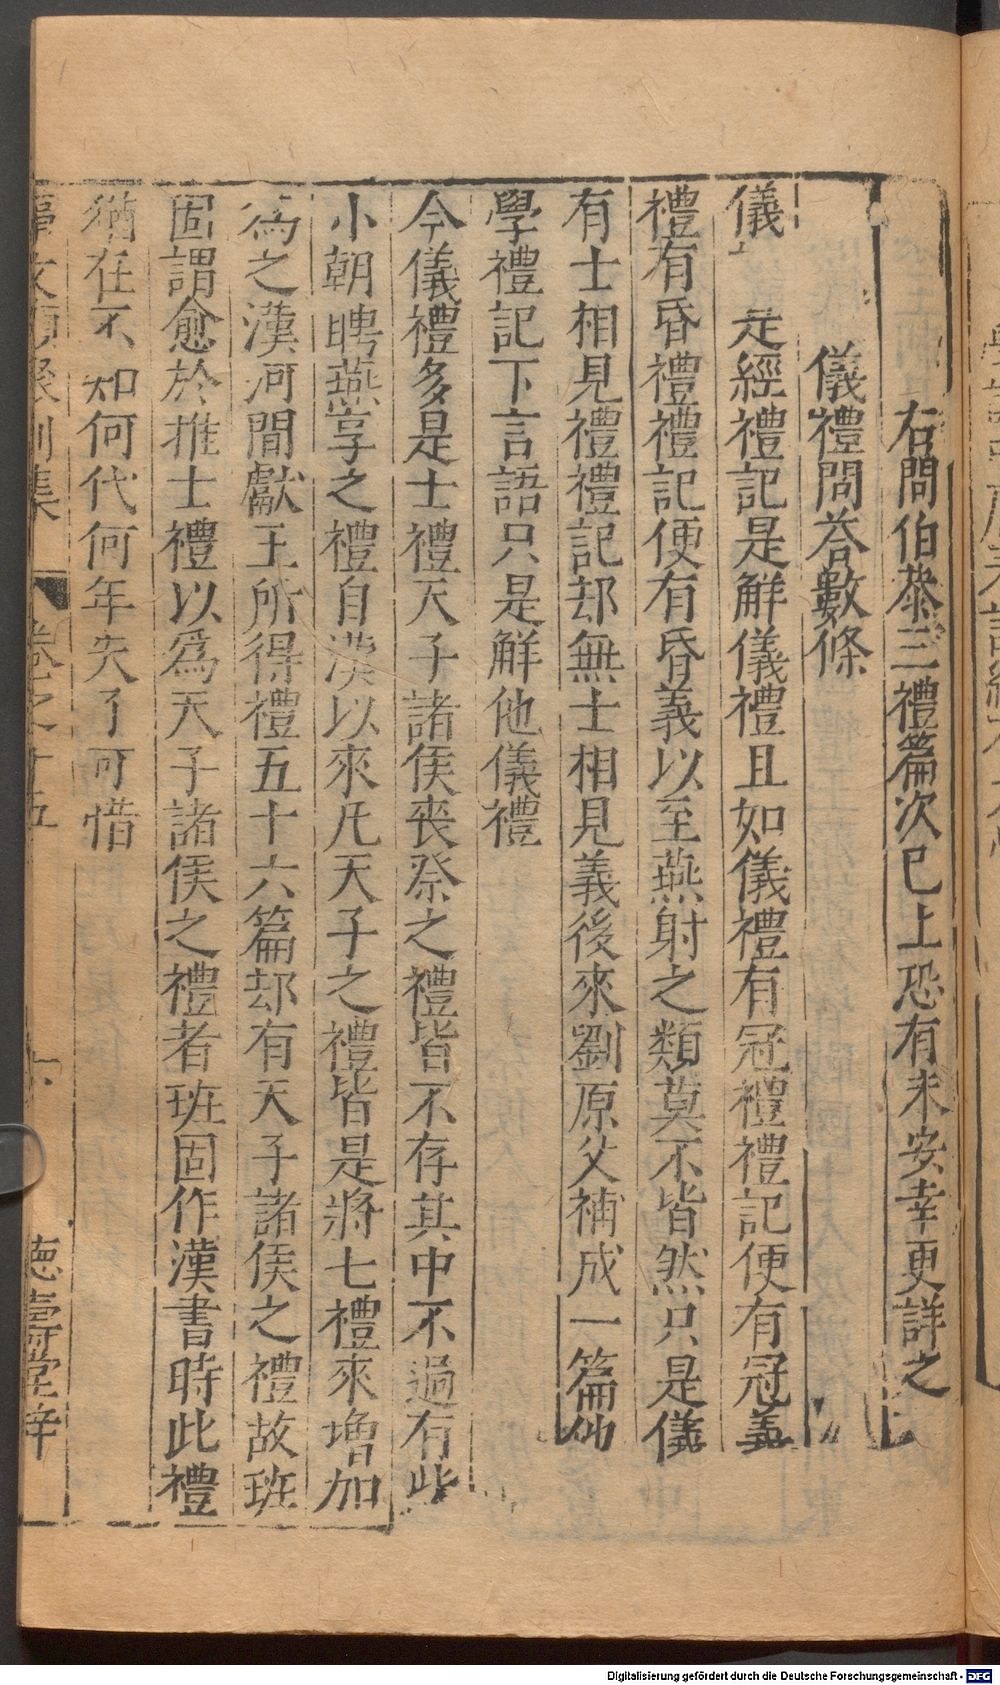 右問伯㳟三禮篇次已上恐有未安幸更詳之
儀禮問荅數條
儀 是經禮記是解儀禮且如儀禮有冠禮禮記便有冠義
禮有昏禮禮記便有昏義以至燕射之類莫不皆然只是儀
有士相見禮禮記却無士相見義後來劉原父補成一篇仙
學禮記下言語只是解他儀禮
今儀禮多是士禮天子諸侯喪祭之禮皆不存其中不過有些
小朝聘燕享之禮自漢以來凡天子之禮皆是將七禮來增加
為之漢河間獻王所得禮五十六篇却有天子諸侯之禮故班
固謂愈於推士禮以爲天子諸侯之禮者班固作漢書時此禮
猶在不知何代何年失了可惜
事文類聚別集 卷之十五 德壽堂梓
Digitalisierung gefördert durch die Deutsche Forschungsgemeinschaft - DFG